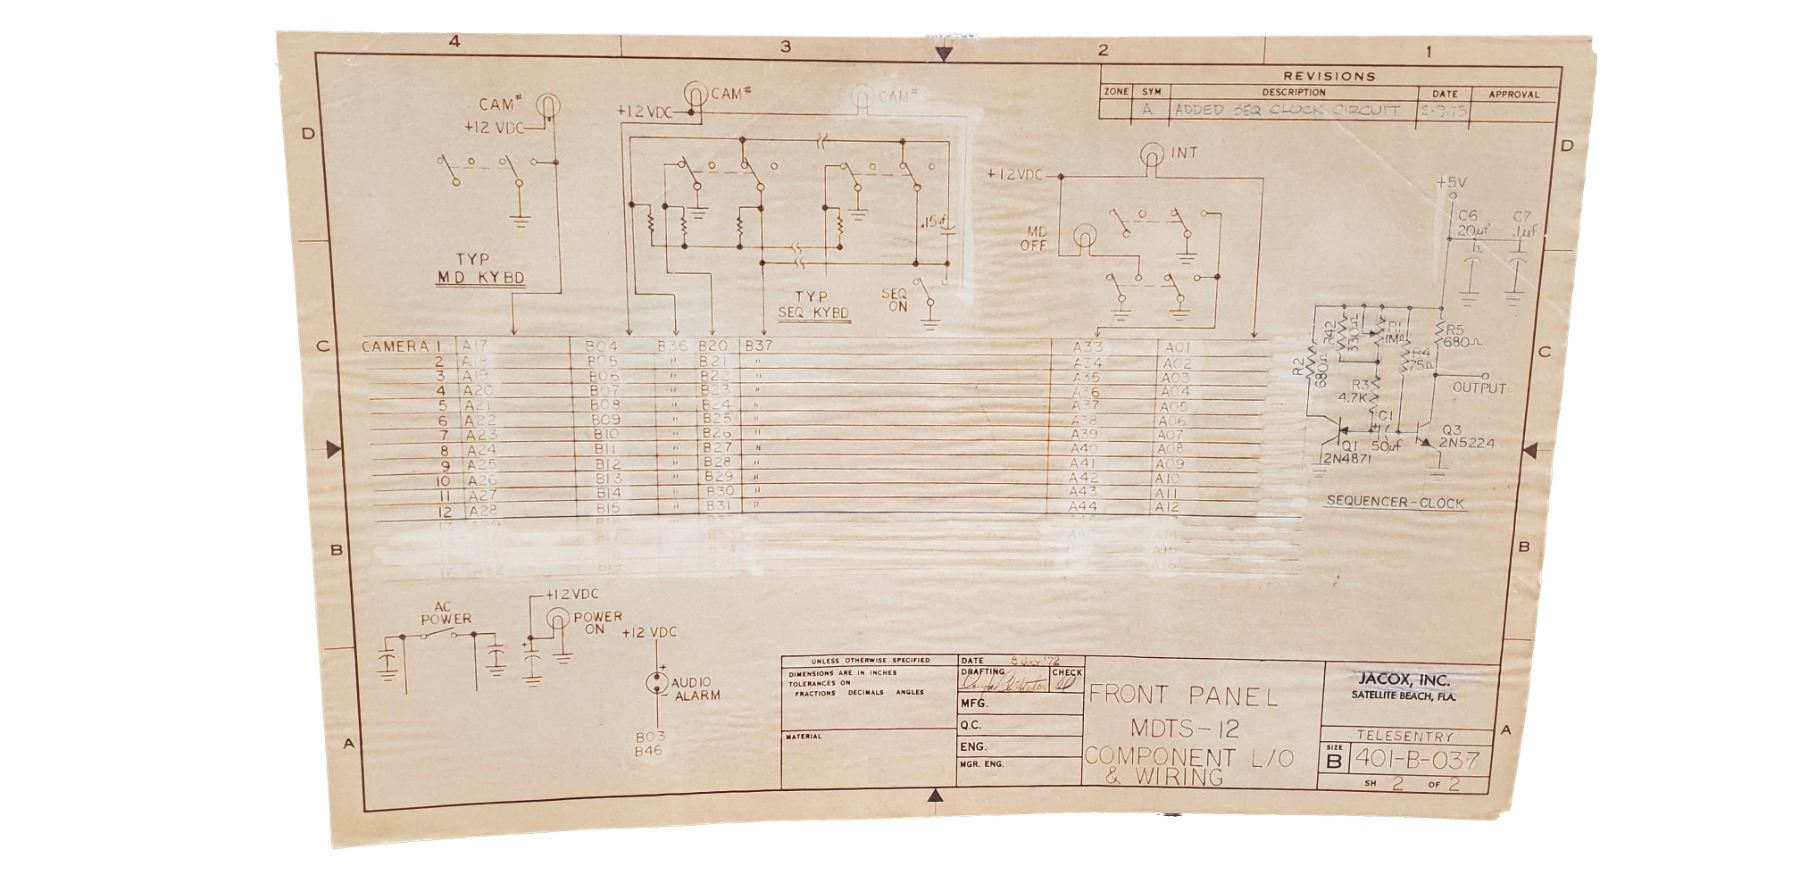 4 3 2 1
REVISIONS
ZONE SYM DESCRIPTION DATE APPROVAL
A ADDED SEQ CLOCK CIRCUIT 2-9-73
D D
CAM#
+12 VDC
CAM#
+12VDC
CAM#
INT
+12VDC
MD
OFF
.15uf
TYP
MD KYBD
TYP
SEQ KYBD
SEQ
ON
+5V
C6
20µf
C7
.1µf
R2
680Ω
R42
330Ω
1MΩ
R4
75Ω
R5
680Ω
R3
4.7K
C1
50µf
OUTPUT
Q1
2N4871
Q3
2N5224
SEQUENCER-CLOCK
C C
CAMERA 1 A17 B04 B36 B20 B37 A33 A01
2 A18 B05 " B21 " A34 A02
3 A19 B06 " B22 " A35 A03
4 A20 B07 " B23 " A36 A04
5 A21 B08 " B24 " A37 A05
6 A22 B09 " B25 " A38 A06
7 A23 B10 " B26 " A39 A07
8 A24 B11 " B27 " A40 A08
9 A25 B12 " B28 " A41 A09
10 A26 B13 " B29 " A42 A10
11 A27 B14 " B30 " A43 A11
12 A28 B15 " B31 " A44 A12
B B
AC
POWER
+12VDC
POWER
ON
+12 VDC
AUDIO
ALARM
B03
B46
A A
UNLESS OTHERWISE SPECIFIED
DIMENSIONS ARE IN INCHES
TOLERANCES ON
FRACTIONS DECIMALS ANGLES
MATERIAL
DATE
DRAFTING CHECK
MFG.
Q.C.
ENG.
MGR. ENG.
FRONT PANEL
MDTS-12
COMPONENT L/O
& WIRING
JACOX, INC.
SATELLITE BEACH, FLA.
TELESENTRY
SIZE
B 401-B-037
SH 2 OF 2